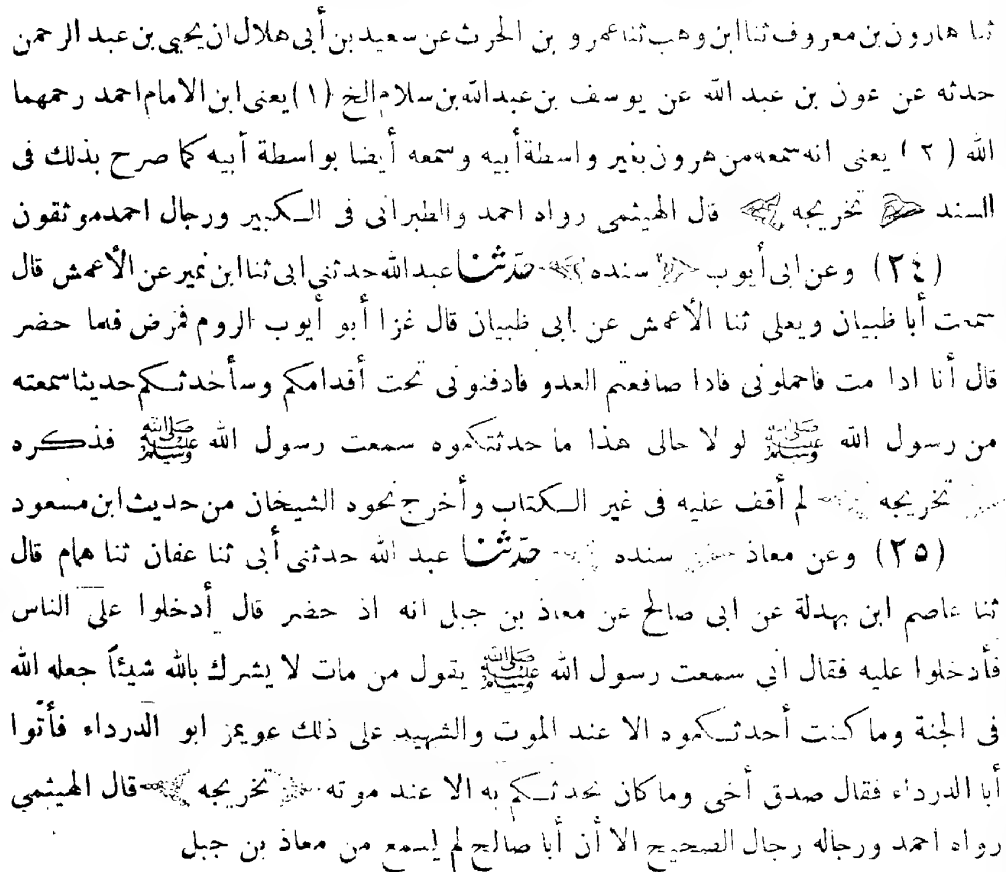 ثنا هارون بن معروف ثنا ابن وهب ثنا عمرو بن الحرث عن سعيد بن أبى هلال ان يحيى بن عبد الرحمن
حدثه عن عون بن عبد الله عن يوسف بن عبد الله بن سلام الخ (١) يعنى ابن الامام احمد رحمهما
الله (٢) يعنى انه سمعه من هرون بغير واسطة أبيه وسمعه أيضا بواسطة أبيه كما صرح بذلك فى
السند تخريجه قال الهيثمى رواه احمد والطبرانى فى الكبير ورجال احمد موثقون
(٢٤) وعن ابى أيوب سنده حدّثنا عبد الله حدثنى ابى ثنا ابن نمير عن الأعمش قال
سمعت أبا ظبيان ويعلى ثنا الأعمش عن ابى ظبيان قال غزا أبو أيوب الروم فمرض فلما حضر
قال أنا اذا مت فاحملونى فاذا صافعتم العدو فادفنونى تحت أقدامكم وسأحدثكم حديثا سمعته
من رسول الله ﷺ لو لا حالى هذا ما حدثتكموه سمعت رسول الله ﷺ فذكره
تخريجه لم أقف عليه فى غير الكتاب وأخرج نحوه الشيخان من حديث ابن مسعود
(٢٥) وعن معاذ سنده حدّثنا عبد الله حدثنى أبى ثنا عفان ثنا همام قال
ثنا عاصم ابن بهدلة عن ابى صالح عن معاذ بن جبل انه اذ حضر قال أدخلوا علىّ الناس
فأدخلوا عليه فقال انى سمعت رسول الله ﷺ يقول من مات لا يشرك بالله شيئاً جعله الله
فى الجنة وما كنت أحدثكموه الا عند الموت والشهيد على ذلك عويمز ابو الدرداء فأتوا
أبا الدرداء فقال صدق أخى وما كان يحدثكم به الا عند موته تخريجه قال الهيثمى
رواه احمد ورجاله رجال الصحيح الا أن أبا صالح لم يسمع من معاذ بن جبل